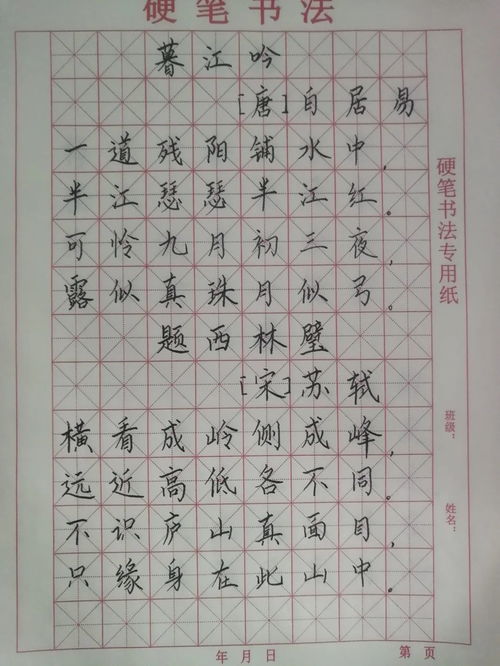 硬笔书法
暮江吟
[唐]自居易
一道残阳铺水中,
半江瑟瑟半江红。
可怜九月初三夜,
露似真珠月似弓。
题西林璧
[宋]苏轼
横看成岭侧成峰,
远近高低各不同。
不识庐山真面目,
只缘身在此山中。
硬笔书法专用纸
班级:
姓名:
年 月 日
第 页